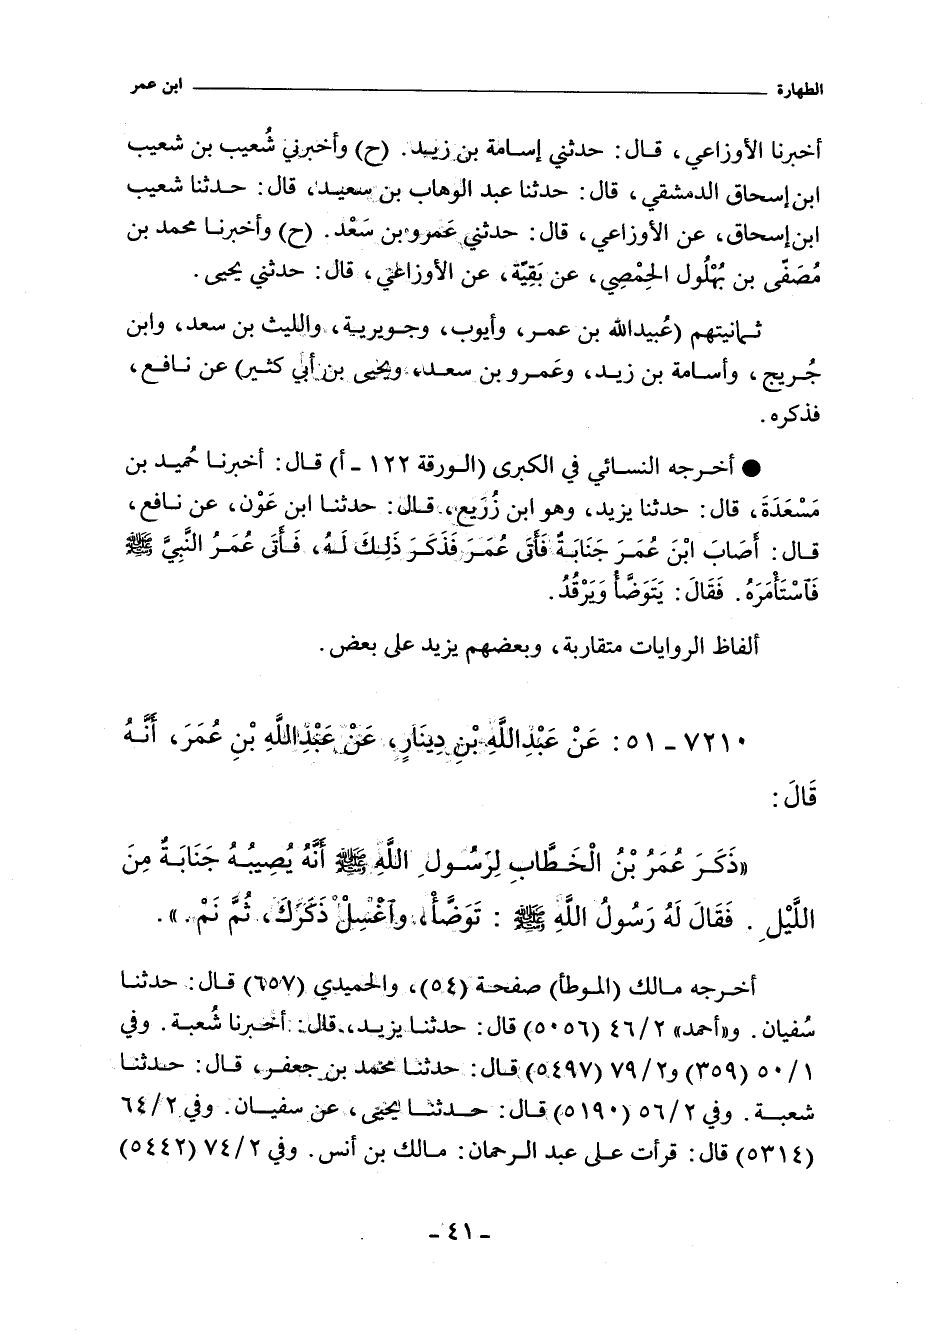 الطهارة ـــــــــــــــــــــــــــــــــــــــ ابن عمر
أخبرنا الأوزاعي، قال: حدثني إسامة بن زيد. (ح) وأخبرني شُعيب بن شعيب
ابن إسحاق الدمشقي، قال: حدثنا عبد الوهاب بن سعيد، قال: حدثنا شعيب
ابن إسحاق، عن الأوزاعي، قال: حدثني عَمرو بن سَعْد. (ح) وأخبرنا محمد بن
مُصَفّى بن بُهْلُول الحِمْصِي، عن بَقِيّة، عن الأوزاعي، قال: حدثني يحيى.
ثمانيتهم (عُبيدالله بن عمر، وأيوب، وجويرية، والليث بن سعد، وابن
جُريج، وأسامة بن زيد، وعَمرو بن سعد، ويحيى بن أبي كثير) عن نافع،
فذكره.
● أخرجه النسائي في الكبرى (الورقة ١٢٢ ـ أ) قال: أخبرنا حُميد بن
مَسْعَدَة، قال: حدثنا يزيد، وهو ابن زُرَيع، قال: حدثنا ابن عَوْن، عن نافع،
قال: أَصَابَ ابْنَ عُمَرَ جَنَابَةٌ فَأَتَى عُمَرَ فَذَكَرَ ذَلِكَ لَهُ، فَأَتَى عُمَرُ النَّبِيَّ ﷺ
فَآسْتَأْمَرَهُ. فَقَالَ: يَتَوَضَّأُ وَيَرْقُدُ.
ألفاظ الروايات متقاربة، وبعضهم يزيد على بعض.
٧٢١٠ ـ ٥١: عَنْ عَبْدِاللَّهِ بْنِ دِينَارٍ، عَنْ عَبْدِاللَّهِ بْنِ عُمَرَ، أَنَّهُ
قَالَ:
«ذَكَرَ عُمَرُ بْنُ الْخَطَّابِ لِرَسُولِ اللَّهِ ﷺ أَنَّهُ يُصِيبُهُ جَنَابَةٌ مِنَ
اللَّيْلِ. فَقَالَ لَهُ رَسُولُ اللَّهِ ﷺ: تَوَضَّأْ، وآغْسِلْ ذَكَرَكَ، ثُمَّ نَمْ.».
أخرجه مالك (الموطأ) صفحة (٥٤)، والحميدي (٦٥٧) قال: حدثنا
سُفيان. و«أحمد» ٤٦/٢ (٥٠٥٦) قال: حدثنا يزيد، قال: أخبرنا شُعبة. وفي
٥٠/١ (٣٥٩) و٧٩/٢ (٥٤٩٧) قال: حدثنا محمد بن جعفر، قال: حدثنا
شعبة. وفي ٥٦/٢ (٥١٩٠) قال: حدثنا يحيى، عن سفيان. وفي ٦٤/٢
(٥٣١٤) قال: قرأت على عبد الرحمان: مالك بن أنس. وفي ٧٤/٢ (٥٤٤٢)
ـ ٤١ ـ